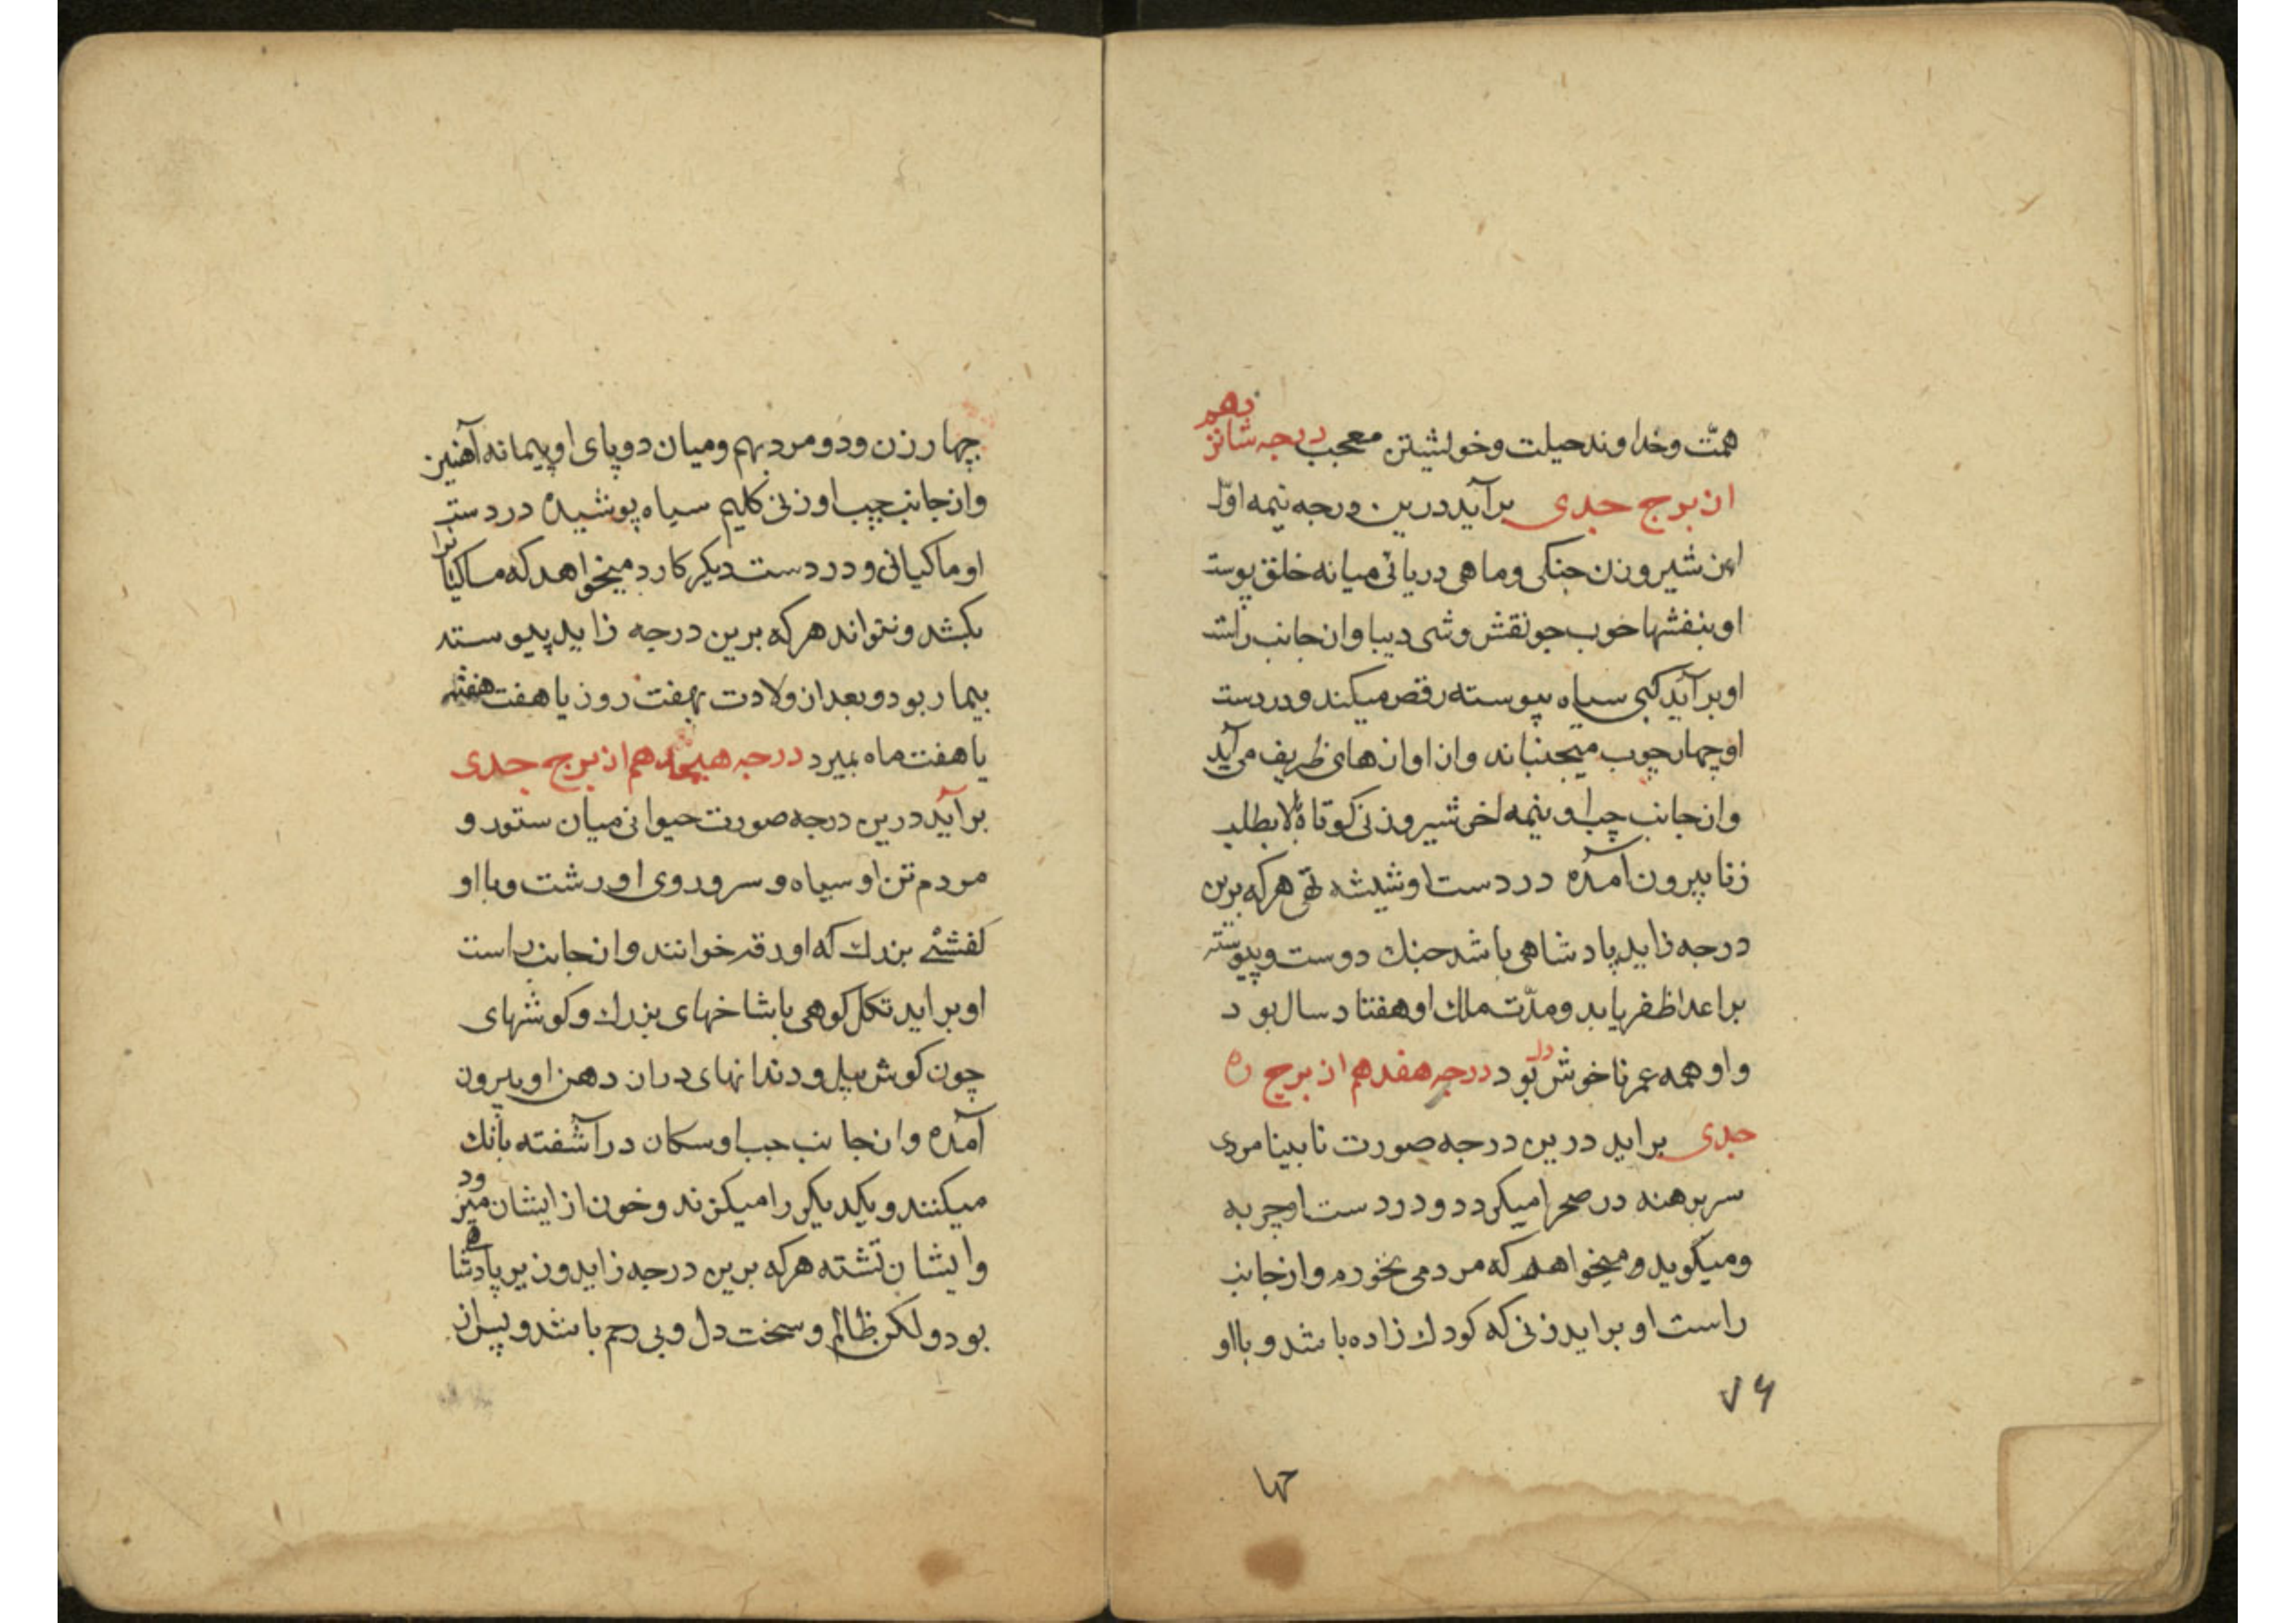 همّت وخداوند حیلت وخویشتن معجب درجه شانزدهم
از برج جدی برآید درین درجه نیمه اول
این شیر وزن جنکی وماهی دریائی میانه خلق پوست
او بنفشها خوب چو نقش وشی دیبا واز جانب راست
او برآید کپی سیاه پیوسته رقص میکند ودر دست
او چهار چوب میجنباند واز اوازهای ظریف می آید
واز جانب چپ او نیمه اخر شیر وزنی کوتاه بالا بطلب
زنا بیرون آمده در دست او شیشه تهی هرکه برین
درجه زاید پادشاهی باشد جنك دوست وپیوسته
بر اعدا ظفر یابد ومدّت ملك او هفتاد سال بود
واو همه عمر ناخوش دل بود درجه هفدهم از برج
جدی براید درین درجه صورت نابینا مردی
سر برهنه در صحرا میکردد ودر دست او حربه
ومیکوید ومیخواهد که مردمی بخورم واز جانب
راست او براید زنی که کودك زاده باشد وبا او
۷۶
چها
چهار زن ودو مرد بهم ومیان دو پای او پیمانه آهنین
واز جانب چپ او زنی کلیم سیاه پوشیده در دست
او ماکیانی ودر دست دیکر کارد میخواهد که ماکیانرا
بکشد ونتواند هرکه برین درجه زاید پیوسته
بیمار بود وبعد از ولادت بهفت روز یا هفت هفته
یا هفت ماه بمیرد درجه هیجدهم از برج جدی
برآید درین درجه صورت حیوانی میان ستور و
مردم تن او سیاه وسر وروی او زشت وبا او
کفشئی بزرك که او رقه خوانند واز جانب راست
او براید تکل کوهی با شاخهای بزرك وکوشهای
چون کوش پیل ودندانهای دراز از دهن او بیرون
آمده واز جانب چپ او سکان در آشفته بانك
میکنند ویکدیکر را میکزند وخون از ایشان میرود
وایشان تشنه هرکه برین درجه زاید وزیر پادشاه
بود ولکن ظالم وسخت دل وبی رحم باشد وپس از